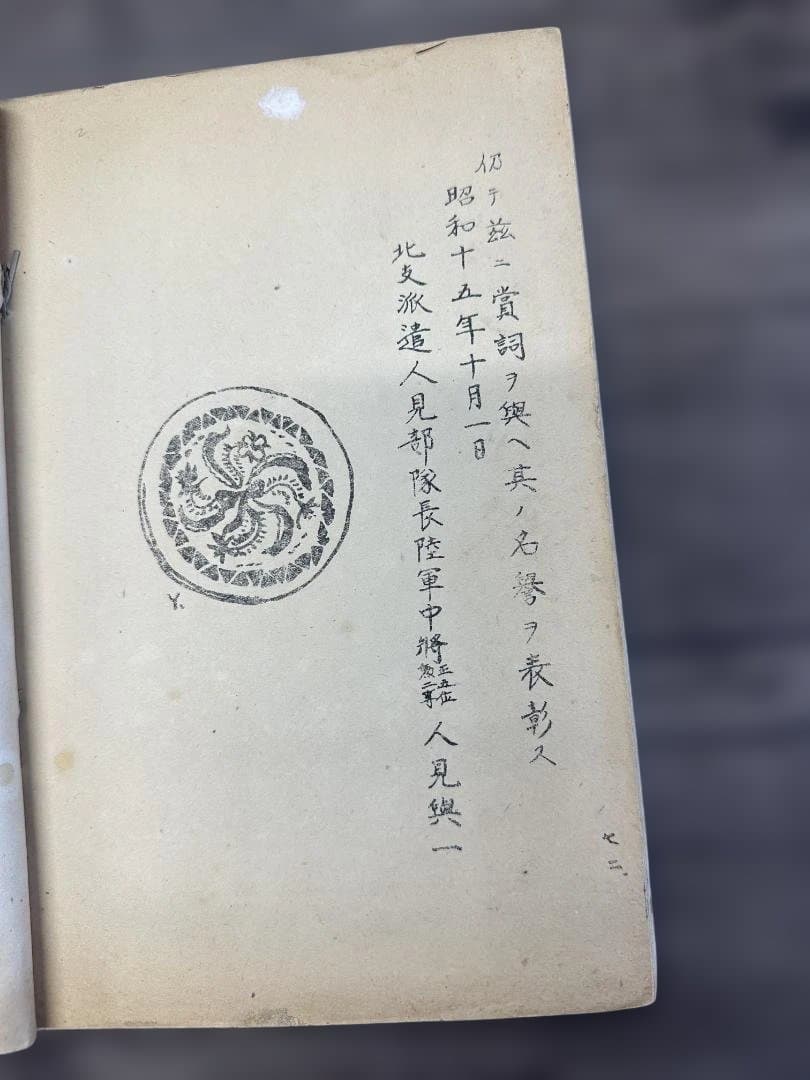 仍テ茲ニ賞詞ヲ與ヘ其ノ名譽ヲ表彰ス
昭和十五年十月一日
北支派遣人見部隊長陸軍中將正五位勲二等人見與一
Y.
七二